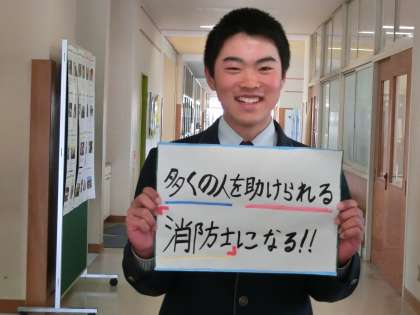 多くの人を助けられる
消防士になる!!